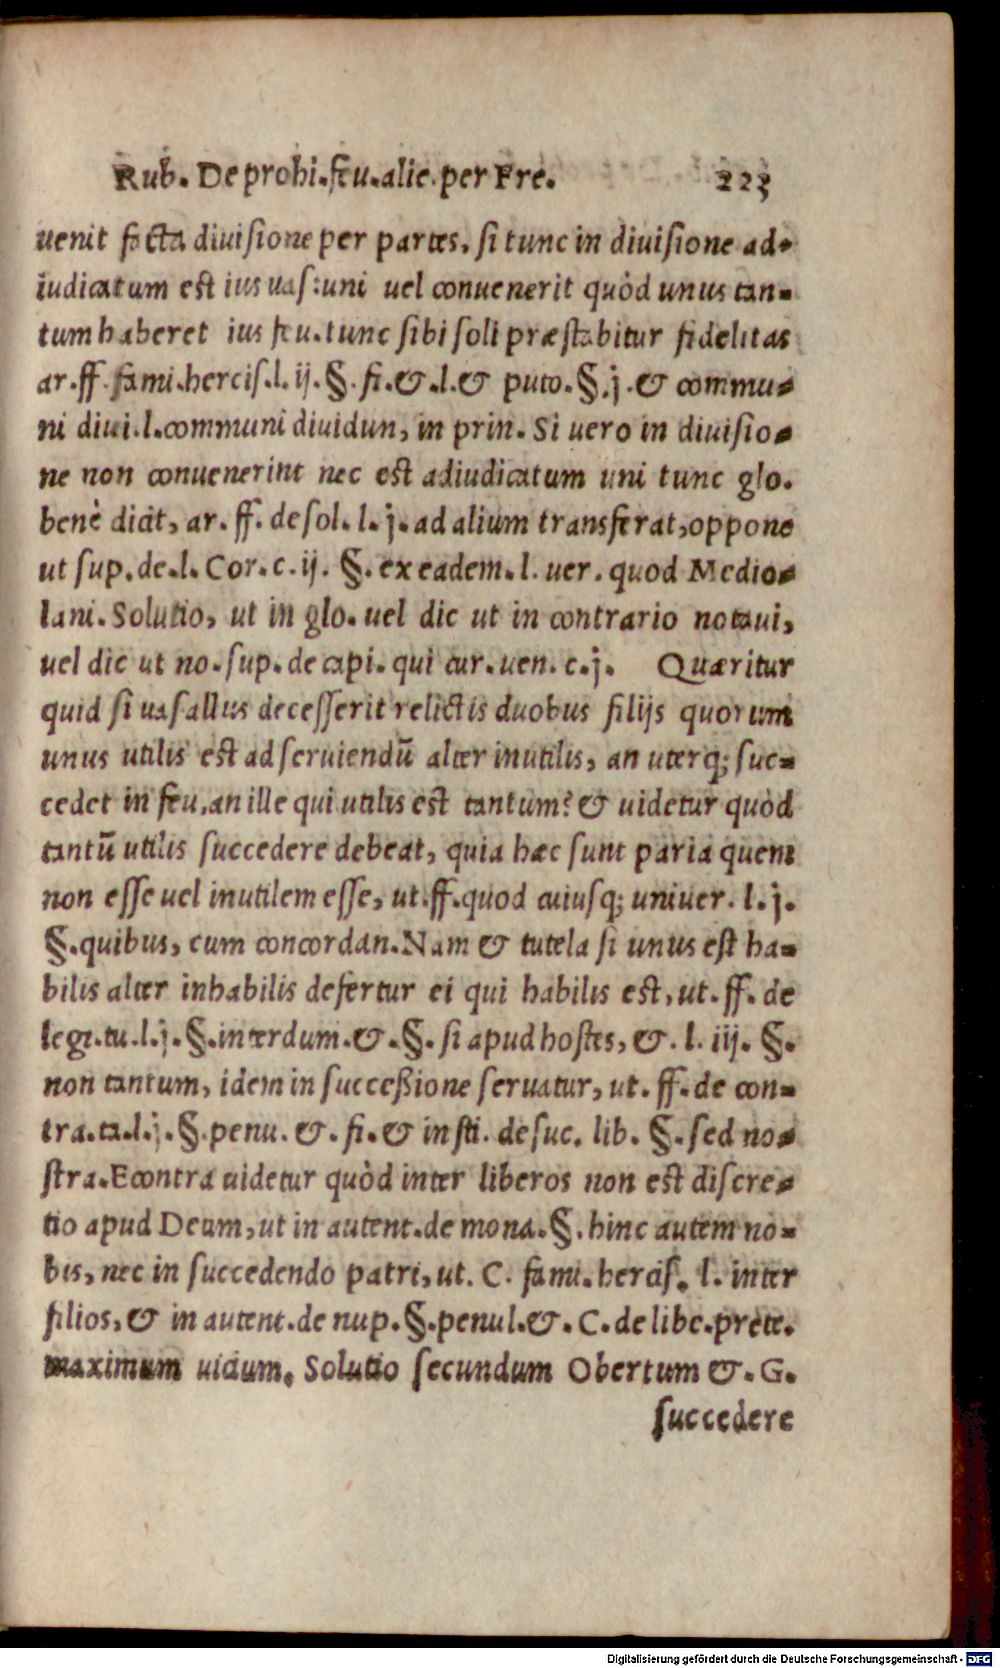 Rub. De prohi. feu. alie. per Fre. 223
uenit facta diuisione per partes, si tunc in diuisione ad-
iudicatum est ius uas: uni uel conuenerit quòd unus tan-
tum haberet ius feu. tunc sibi soli præstabitur fidelitas
ar. ff. fami. hercis. l. ij. §. fi. & .l. & puto. §. j. & commu-
ni diui. l. communi diuidun, in prin. Si uero in diuisio-
ne non conuenerint nec est adiudicatum uni tunc glo.
benè dicit, ar. ff. de sol. l. j. ad alium transferat, oppone
ut sup. de. l. Cor. c. ij. §. ex eadem. l. uer. quod Medio-
lani. Solutio, ut in glo. uel dic ut in contrario notaui,
uel dic ut no. sup. de capi. qui cur. uen. c. j. Quæritur
quid si uasallus decesserit relictis duobus filijs quorum
unus utilis est ad seruiendū alter inutilis, an uterq; suc-
cedet in feu. an ille qui utilis est tantum? & uidetur quòd
tantū utilis succedere debeat, quia hæc sunt paria quem
non esse uel inutilem esse, ut. ff. quod cuiusq; uniuer. l. j.
§. quibus, cum concordan. Nam & tutela si unus est ha-
bilis alter inhabilis defertur ei qui habilis est, ut. ff. de
legi. tu. l. j. §. interdum. & . §. si apud hostes, & . l. iij. §.
non tantum, idem in successione seruatur, ut. ff. de con-
tra. ta. l. j. §. penu. & . fi. & insti. de suc. lib. §. sed no-
stra. Econtra uidetur quòd inter liberos non est discre-
tio apud Deum, ut in autent. de mona. §. hinc autem no-
bis, nec in succedendo patri, ut. C. fami. hercis. l. inter
filios, & in autent. de nup. §. penul. & . C. de libe. prete.
maximum uicium. Solutio secundum Obertum & . G.
succedere
Digitalisierung gefördert durch die Deutsche Forschungsgemeinschaft - DFG